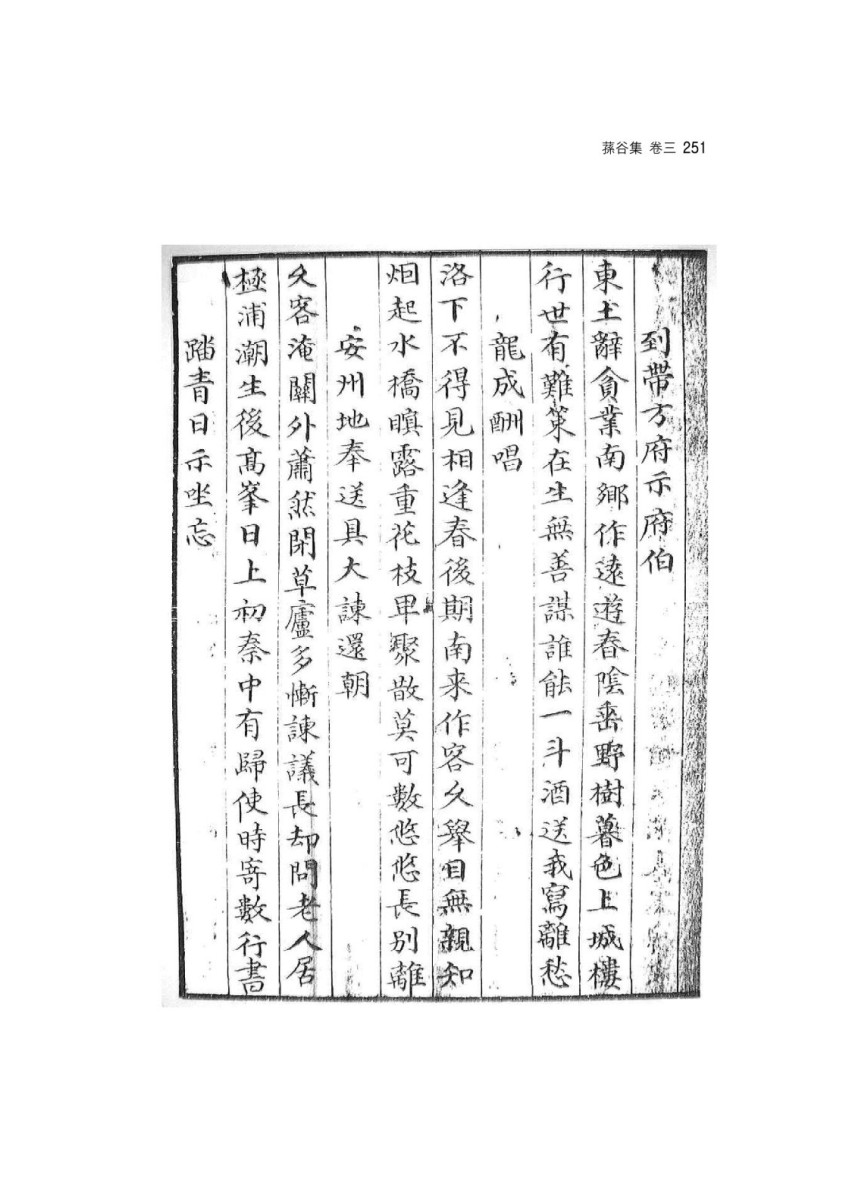 蓀谷集 卷三 251
到帶方府示府伯
東土辭貪業南鄉作遠遊春陰垂野樹暮色上城樓
行世有難策在生無善謀誰能一斗酒送我寫離愁
龍成酬唱
洛下不得見相逢春後期南来作客久舉目無親知
烟起水橋暝露重花枝畀聚散莫可數悠悠長別離
安州地奉送具大諫還朝
久客淹關外蕭然閉草廬多慚諫議長却問老人居
極浦潮生後高峯日上初秦中有歸使時寄數行書
踏青日示坐忘